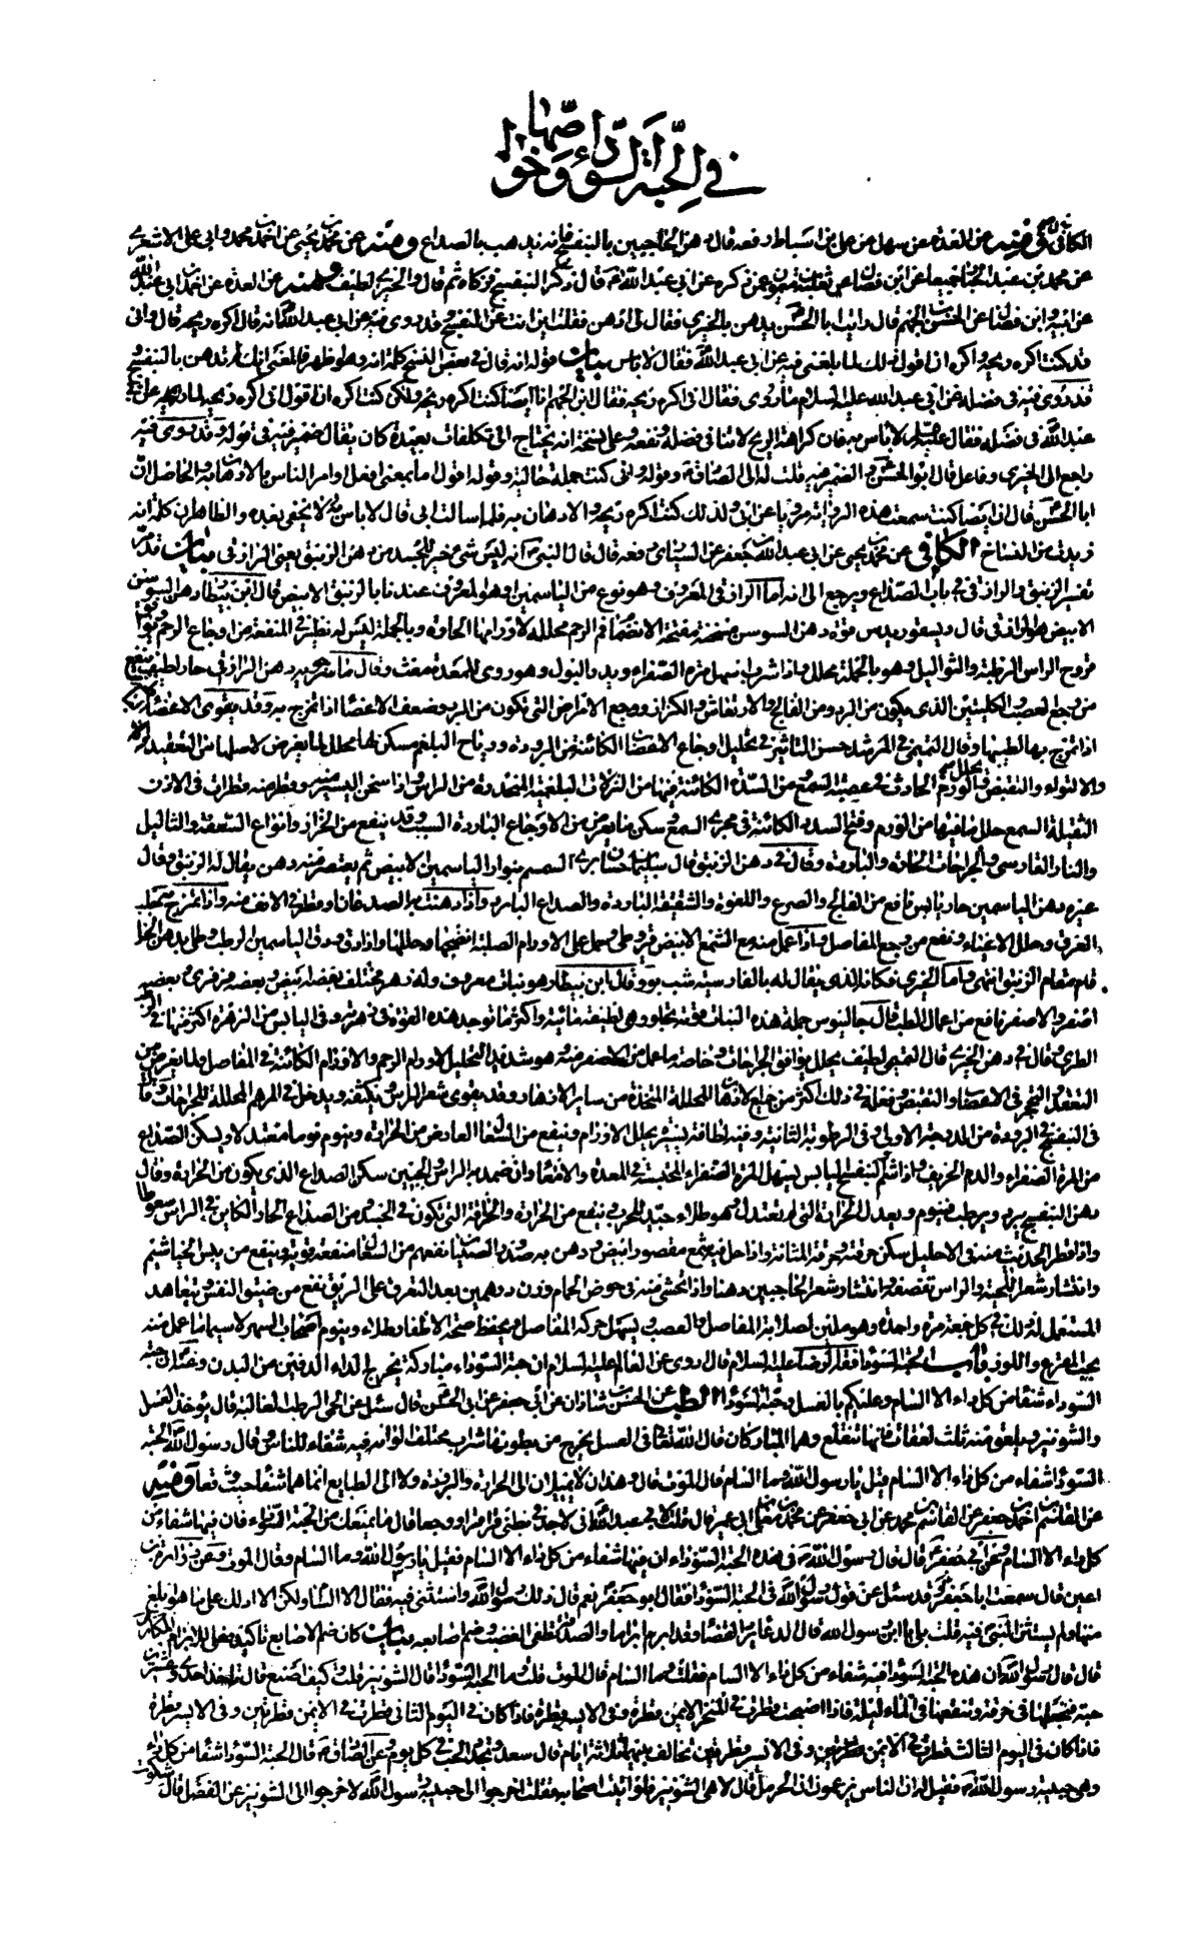 في الحبة السوداء وخواصها
الكافي ومنه عن العدة عن سهل عن علي بن اسباط رفعه قال دهن الحاجبين بالبنفسج فانه يذهب بالصداع ومنه عن محمد بن يحيى عن احمد بن محمد وابي علي الاشعري
عن محمد بن عبد الجبار جميعا عن ابن فضال عن ثعلبة بن ميمون عمن ذكره عن ابي عبد الله قال ذكر البنفسج فزكاه ثم قال والخيري لطيف ومنه عن العدة عن احمد بن ابي عبد الله
عن ابيه وابن فضال عن الحسن بن الجهم قال رايت ابا الحسن يدهن بالخيري فقال لي ادهن فقلت اين انت عن البنفسج وقد روي فيه عن ابي عبد الله قال اكره ريحه قال واني
قد كنت اكره ريحه واكره ان اقول ذلك لما بلغني فيه عن ابي عبد الله فقال لا باس بيان قوله انه قال في بعض النسخ كلمة انه وهو ظهر فالمعنى انك لم تدهن بالبنفسج
قد روي فيه في فضله عن ابي عبد الله عليه السلام ما روي فقال اني اكره ريحه فقال ابن الجهم انا ايضا كنت اكره ريحه ولكن كنت اكره ان اقول اني اكره ريحه لما
عبد الله في فضله فقال عليه السلام لا باس به فان كراهة الريح لا تنافي فضله ونفعه وعلى نسخة انه يحتاج الى تكلفات بعيدة كان يقال ضمير فيه في قوله وقد روي فيه
راجع الى الخيري وفاعل قال ابو الحسن والضمير فيه قلت له الى الصادق وقوله واني كنت جملة حالية وقوله اقول اما بمعنى افعل او امر الناس بالادهان به والحاصل ان
ابا الحسن قال اني ايضا كنت سمعت هذه الرواية مرويا عن ابي ولذلك كنت اكره ريحه والادهان به فلما سالت ابي قال لا باس به ولا يخفى بعده والظاهر ان كلمة انه
زيدت من النساخ الكافي عن محمد بن يحيى عن ابي عبد الله بن جعفر عن السياري رفعه قال قال النبي انه ليس شيء خير للجسد من دهن الزنبق يعني الرازقي بيان قد مر
تفسير الزنبق والرازقي في باب الصداع ويرجع الى انه اما الرازقي المعروف وهو نوع من الياسمين او هو المعروف عندنا بالزنبق الابيض قال ابن بيطار دهن السوسن
الابيض هو الرازقي قال ديسقوريدس قوة دهن السوسن مسخنة مفتحة لانضمام فم الرحم محللة لاورامها الحارة وبالجملة ليس له نظير في المنفعة من اوجاع الرحم
قروح الراس الرطبة والثواليل وهو بالجملة محلل واذا شرب اسهل مرة الصفراء ويدر البول وهو ردي للمعدة مغث وقال ماسرحويه دهن الرازقي حار لطيف ينفع
من وجع العصب والكليتين الذي يكون من البرد ومن الفالج والارتعاش والكزاز ووجع الامراض التي تكون من البرد وضعف الاعضاء اذا تمرخ به وقد يقوي الاعضاء
اذا تمرخ به لطيبها وقال التميمي في المرشد حسن التاثير في تحليل اوجاع الاعصاب الكائنة من البرودة ورياح البلغم مسكن لها محلل لما يعرض لاصلها من التعقيد
والالتواء والتقبض محلل للورم الحادث في عصبة السمع من السدة الكائنة فيها من النزلات البلغمية المنحدرة من الراس واذا سخن اليسير منه وقطر منه قطرات في الاذن
الثقيلة السمع حلل ما فيها من الورم وفتح السدد الكائنة في مجرى السمع وسكن ما يعرض من الاوجاع الباردة السبب وقد ينفع من الحزاز وانواع السعفة والثاليل
والنار الفارسي والجراحات الحارة والباردة وقال في دهن الزنبق قال سليمان بن حسان يربى السمسم بنوار الياسمين الابيض ثم يعتصر منه دهن يقال له الزنبق وقال
غيره دهن الياسمين حار يابس نافع من الفالج والصرع واللقوة والشقيقة الباردة والصداع البارد واذا دهنت به الصدغان او قطر في الانف منه واذا تمرخ به جلب
العرق وحلل الاعياء ونفع من وجع المفاصل واذا عمل منه مع الشمع الابيض قيروطي وحمل على الاورام الصلبة انضجها وحللها واذا دق ورق الياسمين الرطب وغلي بدهن الخل
قام مقام الزنبق انتهى واما الخيري فكانه الذي يقال له بالفارسية شب بو وقال ابن بيطار هو نبات معروف وله زهر مختلف بعضه ابيض وبعضه فرفيري وبعضه
اصفر والاصفر نافع من اعمال الطب قال جالينوس جملة هذا النبات قوته تجلو وهي لطيفة مائية واكثر ما توجد هذه القوة في زهرته وفي اليابس من الزهرة اكثر منها في
الطري وقال في دهن الخيري قال التميمي لطيف محلل يوافق الجراحات وخاصة ما عمل من الاصفر منه وهو شديد التحليل لاورام الرحم والاورام الكائنة في المفاصل ولما يعرض من
التعقد والتحجر في الاعصاب والتقبض وفعله في ذلك اكثر من جميع الادهان المحللة المتخذة من ساير الازهار وقد يقوي شعر الراس ويكثفه ويدخل في المراهم المحللة للجراحات
في البنفسج البرودة من الدرجة الاولى وفي الرطوبة الثانية وفيه لطافة يسيرة يحلل الاورام وينفع من السعال العارض من الحرارة وينوم نوما معتدلا ويسكن الصداع
من المرة الصفراء والدم الحريف اذا شم والبنفسج اليابس يسهل المرة الصفراء المحتبسة في المعدة والامعاء وان ضمد به الراس والجبين سكن الصداع الذي يكون من الحرارة وقال
دهن البنفسج يبرد ويرطب فينوم ويعدل الحرارة التي لم تعتدل وهو طلاء جيد للجرب ينفع من الحرارة والحرافة التي تكون في الجسد من الصداع الحار الكائن في الراس سعوطا
واذا قطر الحديث منه في الاحليل سكن حرقته وحرقة المثانة واذا حل فيه شمع مقصور ابيض ودهن به صدور الصبيان نفعهم من السعال منفعة قوية وينفع من يبس الخياشيم
وانتشار شعر اللحية والراس تقصفه وانتثار شعر الحاجبين دهنا واذا تحسي منه في حوض الحمام وزن درهمين بعد التعرق على الريق نفع من ضيق النفس يتعاهد
المستعمل له ذلك في كل جمعة مرة واحدة وهو ملين لصلابة المفاصل والعصب ويسهل حركة المفاصل ويحفظ صحة الاظفار طلاء وينوم اصحاب السهر لاسيما ما عمل منه
بحب القرع واللوز باب الحبة السوداء فقه الرضا عليه السلام قال روي عن العالم عليه السلام ان حبة السوداء مباركة يخرج الداء الدفين من البدن وعنه ان حبة
السوداء شفاء من كل داء الا السام وعليكم بالعسل وحبة السوداء الطب عن الحسن بن شاذان عن ابي جعفر عن ابي الحسن قال سئل عن الحمى الربع الغالبة قال يؤخذ العسل
والشونيز ويلعق منه ثلث لعقات فانها تنقلع وهما المباركان قال الله تعالى في العسل يخرج من بطونها شراب مختلف الوانه فيه شفاء للناس وقال رسول الله في الحبة
السوداء شفاء من كل داء الا السام قيل يا رسول الله وما السام قال الموت قال وهذان لا يميلان الى الحرارة والبرودة ولا الى الطبايع انما هما شفاء حيث وقعا ومنه
عن القاسم بن احمد بن جعفر عن القاسم بن محمد عن ابي جعفر عن محمد بن يعلى بن ابي عمير قال قلت لابي عبد الله اني لاجد في بطني قراقر ووجعا قال ما يمنعك من الحبة السوداء فان فيها شفاء من
كل داء الا السام وعن ابي جعفر قال قال رسول الله في هذه الحبة السوداء ان فيها شفاء من كل داء الا السام فقيل يا رسول الله وما السام قال الموت وعن زرارة بن
اعين قال سمعت ابا جعفر وقد سئل عن قول رسول الله في الحبة السوداء فقال ابو جعفر نعم قال ذلك رسول الله واستثنى فيه فقال الا السام ولكن الا ادلك على ما هو ابلغ
منها ولم يستثن النبي فيه قلت بلى يا ابن رسول الله قال الدعاء يرد القضاء وقد ابرم ابراما والصدقة تطفئ الغضب وضم اصابعه بيان كان ضم الاصابع تاكيد
قال قال رسول الله ان هذه الحبة السوداء فيه شفاء من كل داء الا السام فقلت وما السام قال الموت قلت وما الحبة السوداء قال الشونيز قلت وكيف اصنع قال تاخذ احدى وعشرين
حبة فتجعلها في خرقة وتنقعها في الماء ليلة فاذا اصبحت قطرت في المنخر الايمن قطرة وفي الايسر قطرة فاذا كان في اليوم الثاني قطرت في الايمن قطرتين وفي الايسر قطرة
فاذا كان في اليوم الثالث قطرت في الايمن قطرة وفي الايسر قطرتين تخالف بينهما ثلثة ايام قال سعد وتجدد الحب في كل يوم وعن الصادق قال الحبة السوداء شفاء من كل داء
وهي حبيبة رسول الله فقيل له ان الناس يزعمون انها الحرمل قال لا هي الشونيز فلو اتيت اصحابه فقلت اخرجوا الي حبيبة رسول الله لاخرجوا الي الشونيز عن الفضل قال